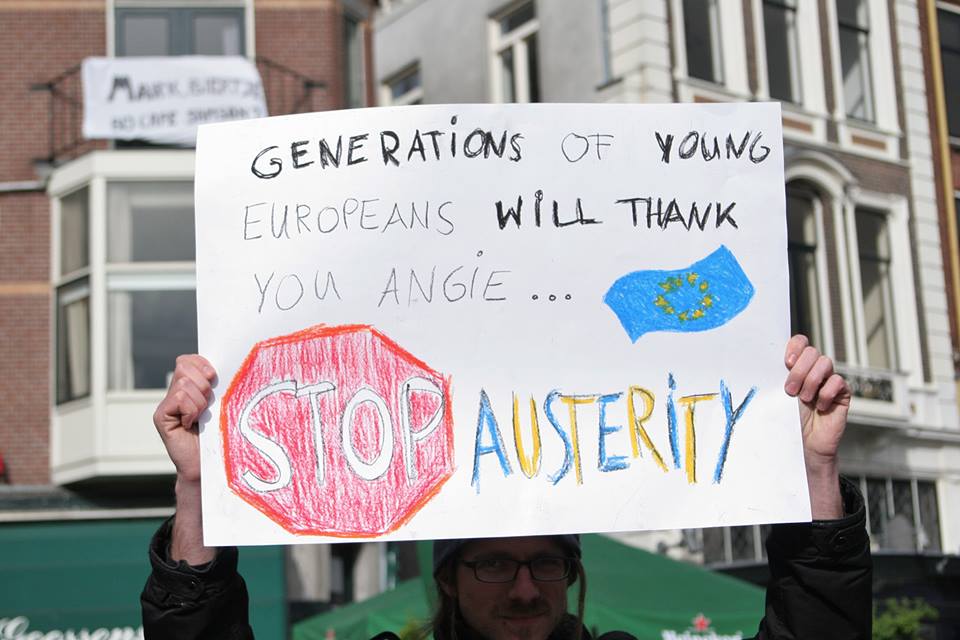 MARK,
GENERATIONS OF YOUNG
EUROPEANS WILL THANK
YOU ANGIE ...
STOP AUSTERITY
Heineken